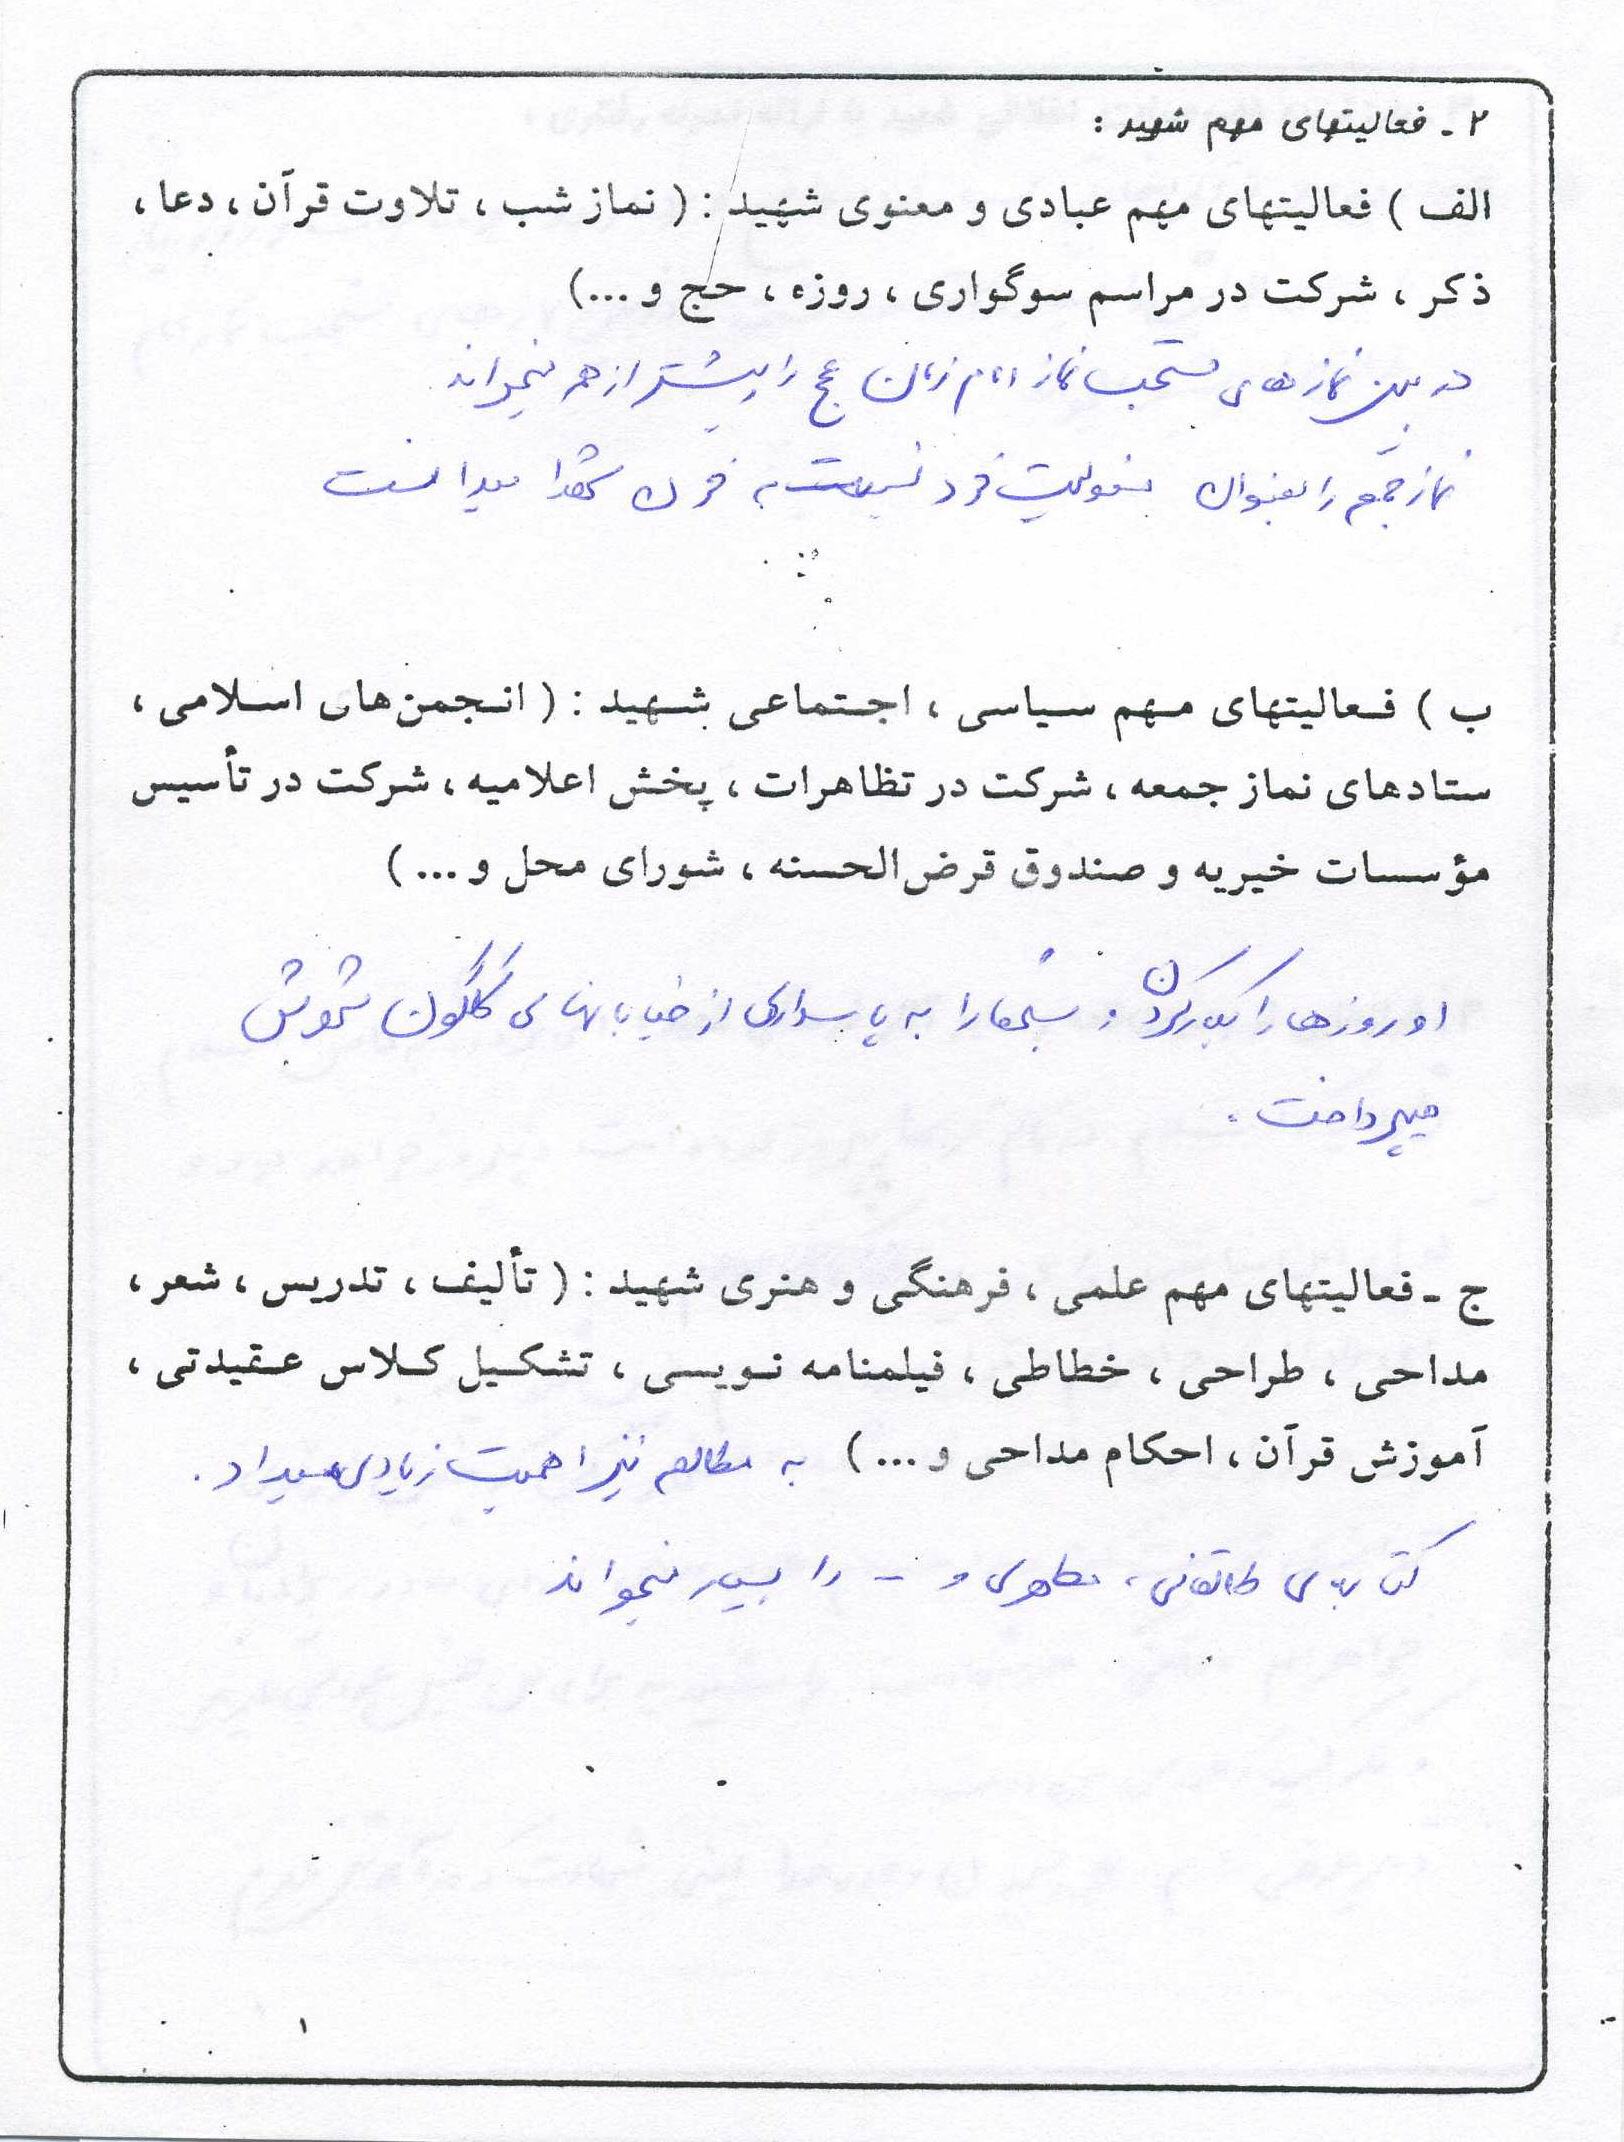 ۲ - فعالیتهای مهم شهید :
الف ) فعالیتهای مهم عبادی و معنوی شهید : ( نماز شب ، تلاوت قرآن ، دعا ،
ذکر ، شرکت در مراسم سوگواری ، روزه ، حج و ... )
در بین نمازهای مستحب نماز امام زمان عج را بیشتر از همه میخواند
نماز جمعه را بعنوان مسئولیت فرد نسبت به خون شهدا میدانست
ب ) فعالیتهای مهم سیاسی ، اجتماعی شهید : ( انجمن‌های اسلامی ،
ستادهای نماز جمعه ، شرکت در تظاهرات ، پخش اعلامیه ، شرکت در تأسیس
مؤسسات خیریه و صندوق قرض‌الحسنه ، شورای محل و ... )
او روزها را بکار کردن و شبها را به پاسداری از خیابانهای گلگون شهرش
میپرداخت .
ج - فعالیتهای مهم علمی ، فرهنگی و هنری شهید : ( تألیف ، تدریس ، شعر ،
مداحی ، طراحی ، خطاطی ، فیلمنامه نویسی ، تشکیل کلاس عقیدتی ،
آموزش قرآن ، احکام مداحی و ... ) به مطالعه نیز اهمیت زیادی میداد .
کتابهای طالقانی ، مطهری و - را بسیار میخواند
۱